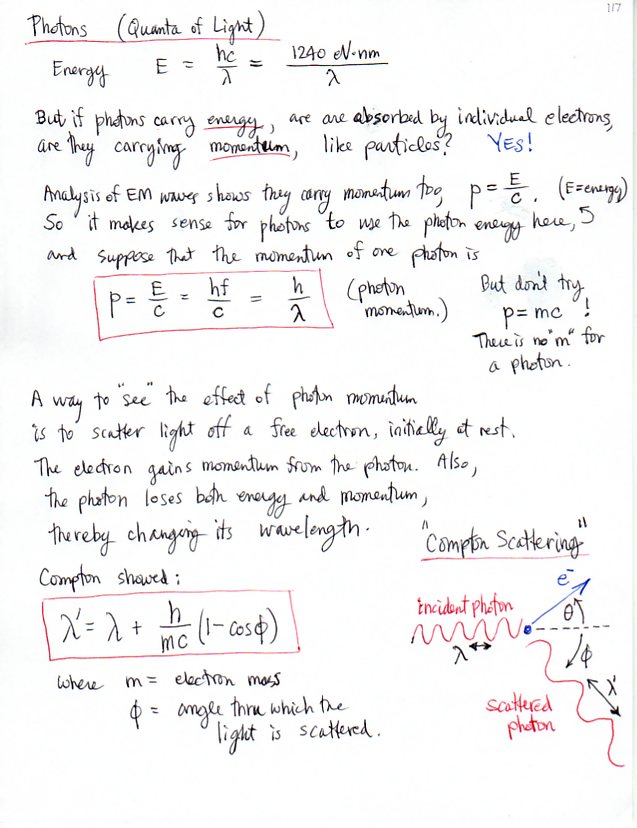 117
Photons (Quanta of Light)
Energy E = hc/λ = 1240 eV·nm/λ
But if photons carry energy, are are absorbed by individual electrons,
are they carrying momentum, like particles? YES!
Analysis of EM waves shows they carry momentum too, p = E/c. (E=energy)
So it makes sense for photons to use the photon energy here,
and suppose that the momentum of one photon is
p = E/c = hf/c = h/λ (photon momentum.)
But don't try
p = mc !
There is no "m" for
a photon.
A way to "see" the effect of photon momentum
is to scatter light off a free electron, initially at rest.
The electron gains momentum from the photon. Also,
the photon loses both energy and momentum,
thereby changing its wavelength.
"Compton Scattering"
Compton showed:
λ' = λ + h/mc (1-cosϕ)
where m = electron mass
ϕ = angle thru which the
light is scattered.
incident photon
λ
e⁻
θ
ϕ
λ'
scattered
photon